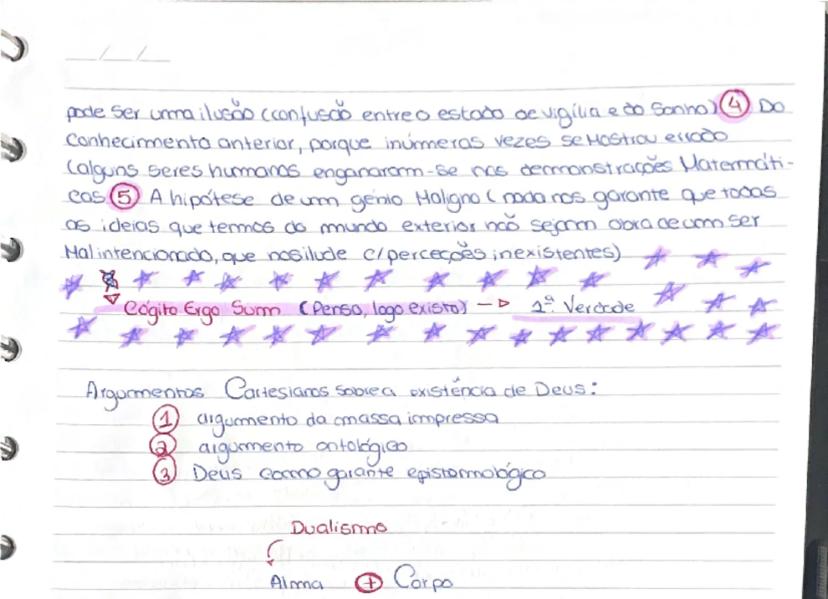 __/__/__
pode ser uma ilusão (confusão entre o estado de vigília e do Sonho) 4 Do
Conhecimento anterior, porque inúmeras vezes se Mostrou errado
(alguns seres humanos enganaram-se nas demonstrações Matemáti-
cas 5 A hipótese de um génio Maligno (nada nos garante que todas
as ideias que temos do mundo exterior não sejam obra de um ser
Mal intencionado, que nos ilude c/ perceções inexistentes)
Cógito Ergo Sum (Penso, logo existo) -> 1ª Verdade
Argumentos Cartesianos sobre a existência de Deus:
1 argumento da massa impressa
2 argumento ontológico
3 Deus como garante epistemológico
Dualismo
Alma + Corpo